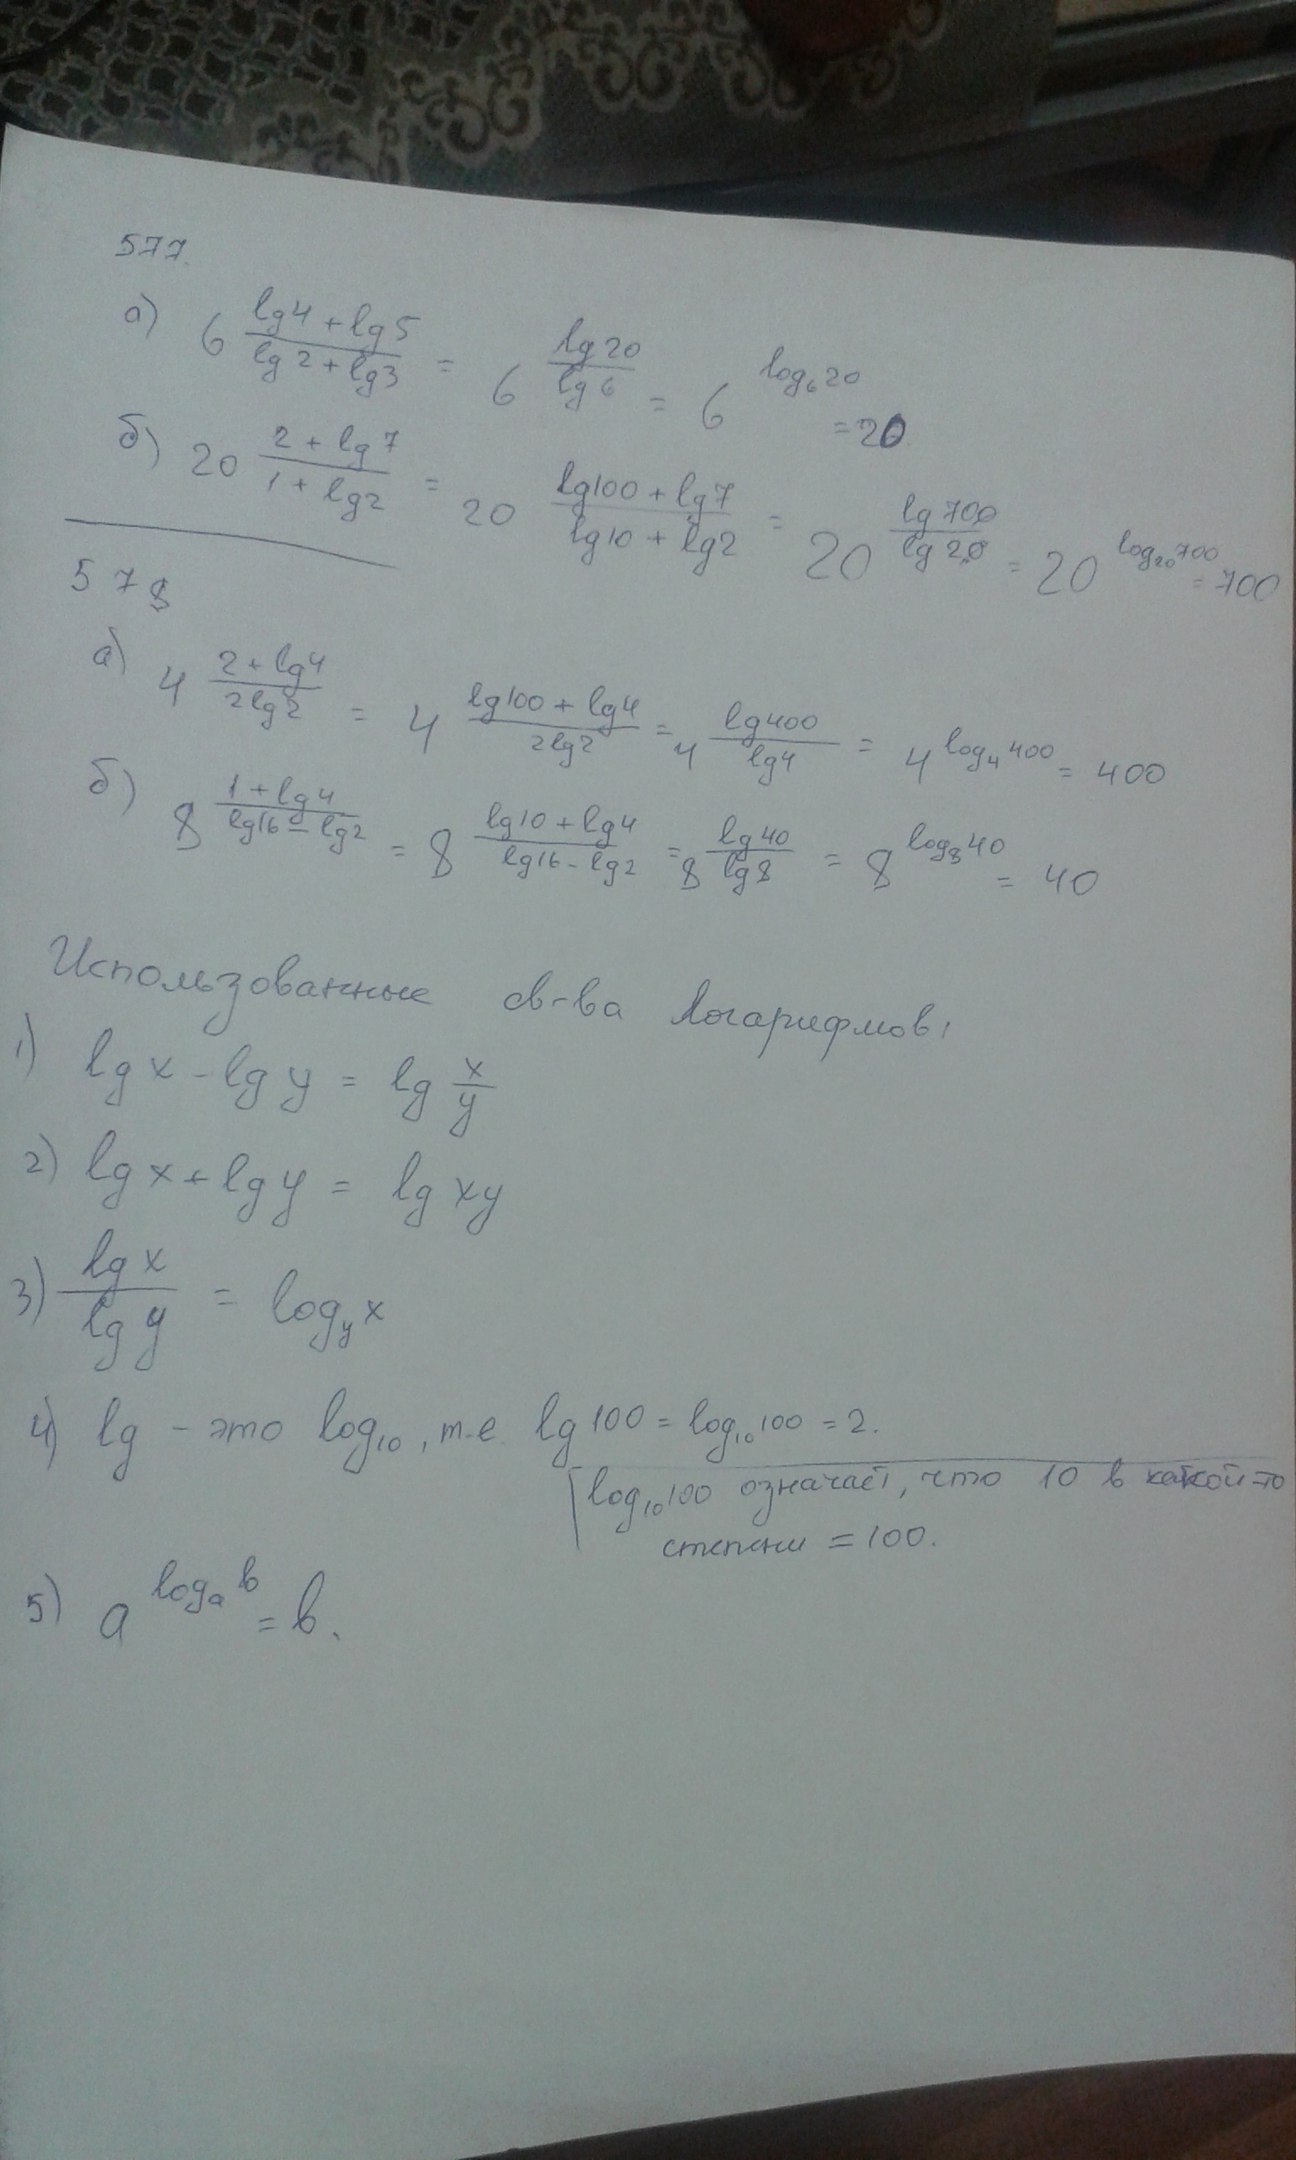 577.
а) 6^((lg4 + lg5)/(lg2 + lg3)) = 6^(lg20/lg6) = 6^(log₆20) = 20
б) 20^((2 + lg7)/(1 + lg2)) = 20^((lg100 + lg7)/(lg10 + lg2)) = 20^(lg700/lg20) = 20^(log₂₀700) = 700
578
а) 4^((2 + lg4)/(2lg2)) = 4^((lg100 + lg4)/(2lg2)) = 4^(lg400/lg4) = 4^(log₄400) = 400
б) 8^((1 + lg4)/(lg16 - lg2)) = 8^((lg10 + lg4)/(lg16 - lg2)) = 8^(lg40/lg8) = 8^(log₈40) = 40
Использованные св-ва логарифмов:
1) lg x - lg y = lg x/y
2) lg x + lg y = lg xy
3) lg x / lg y = log_y x
4) lg - это log₁₀, т.е. lg 100 = log₁₀100 = 2.
log₁₀100 означает, что 10 в какой-то
степени = 100.
5) a^(log_a b) = b.